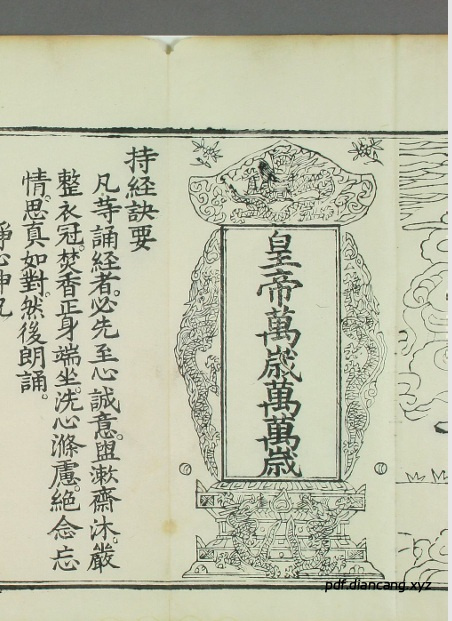 皇帝萬歲萬萬歲
持經訣要
凡䒭誦經者。必先至心誠意。盥漱齋沐。嚴
整衣冠。焚香正身端坐。洗心滌慮。絕念忘
情。思真如對。然後朗誦。
淨心神咒
pdf.diancang.xyz